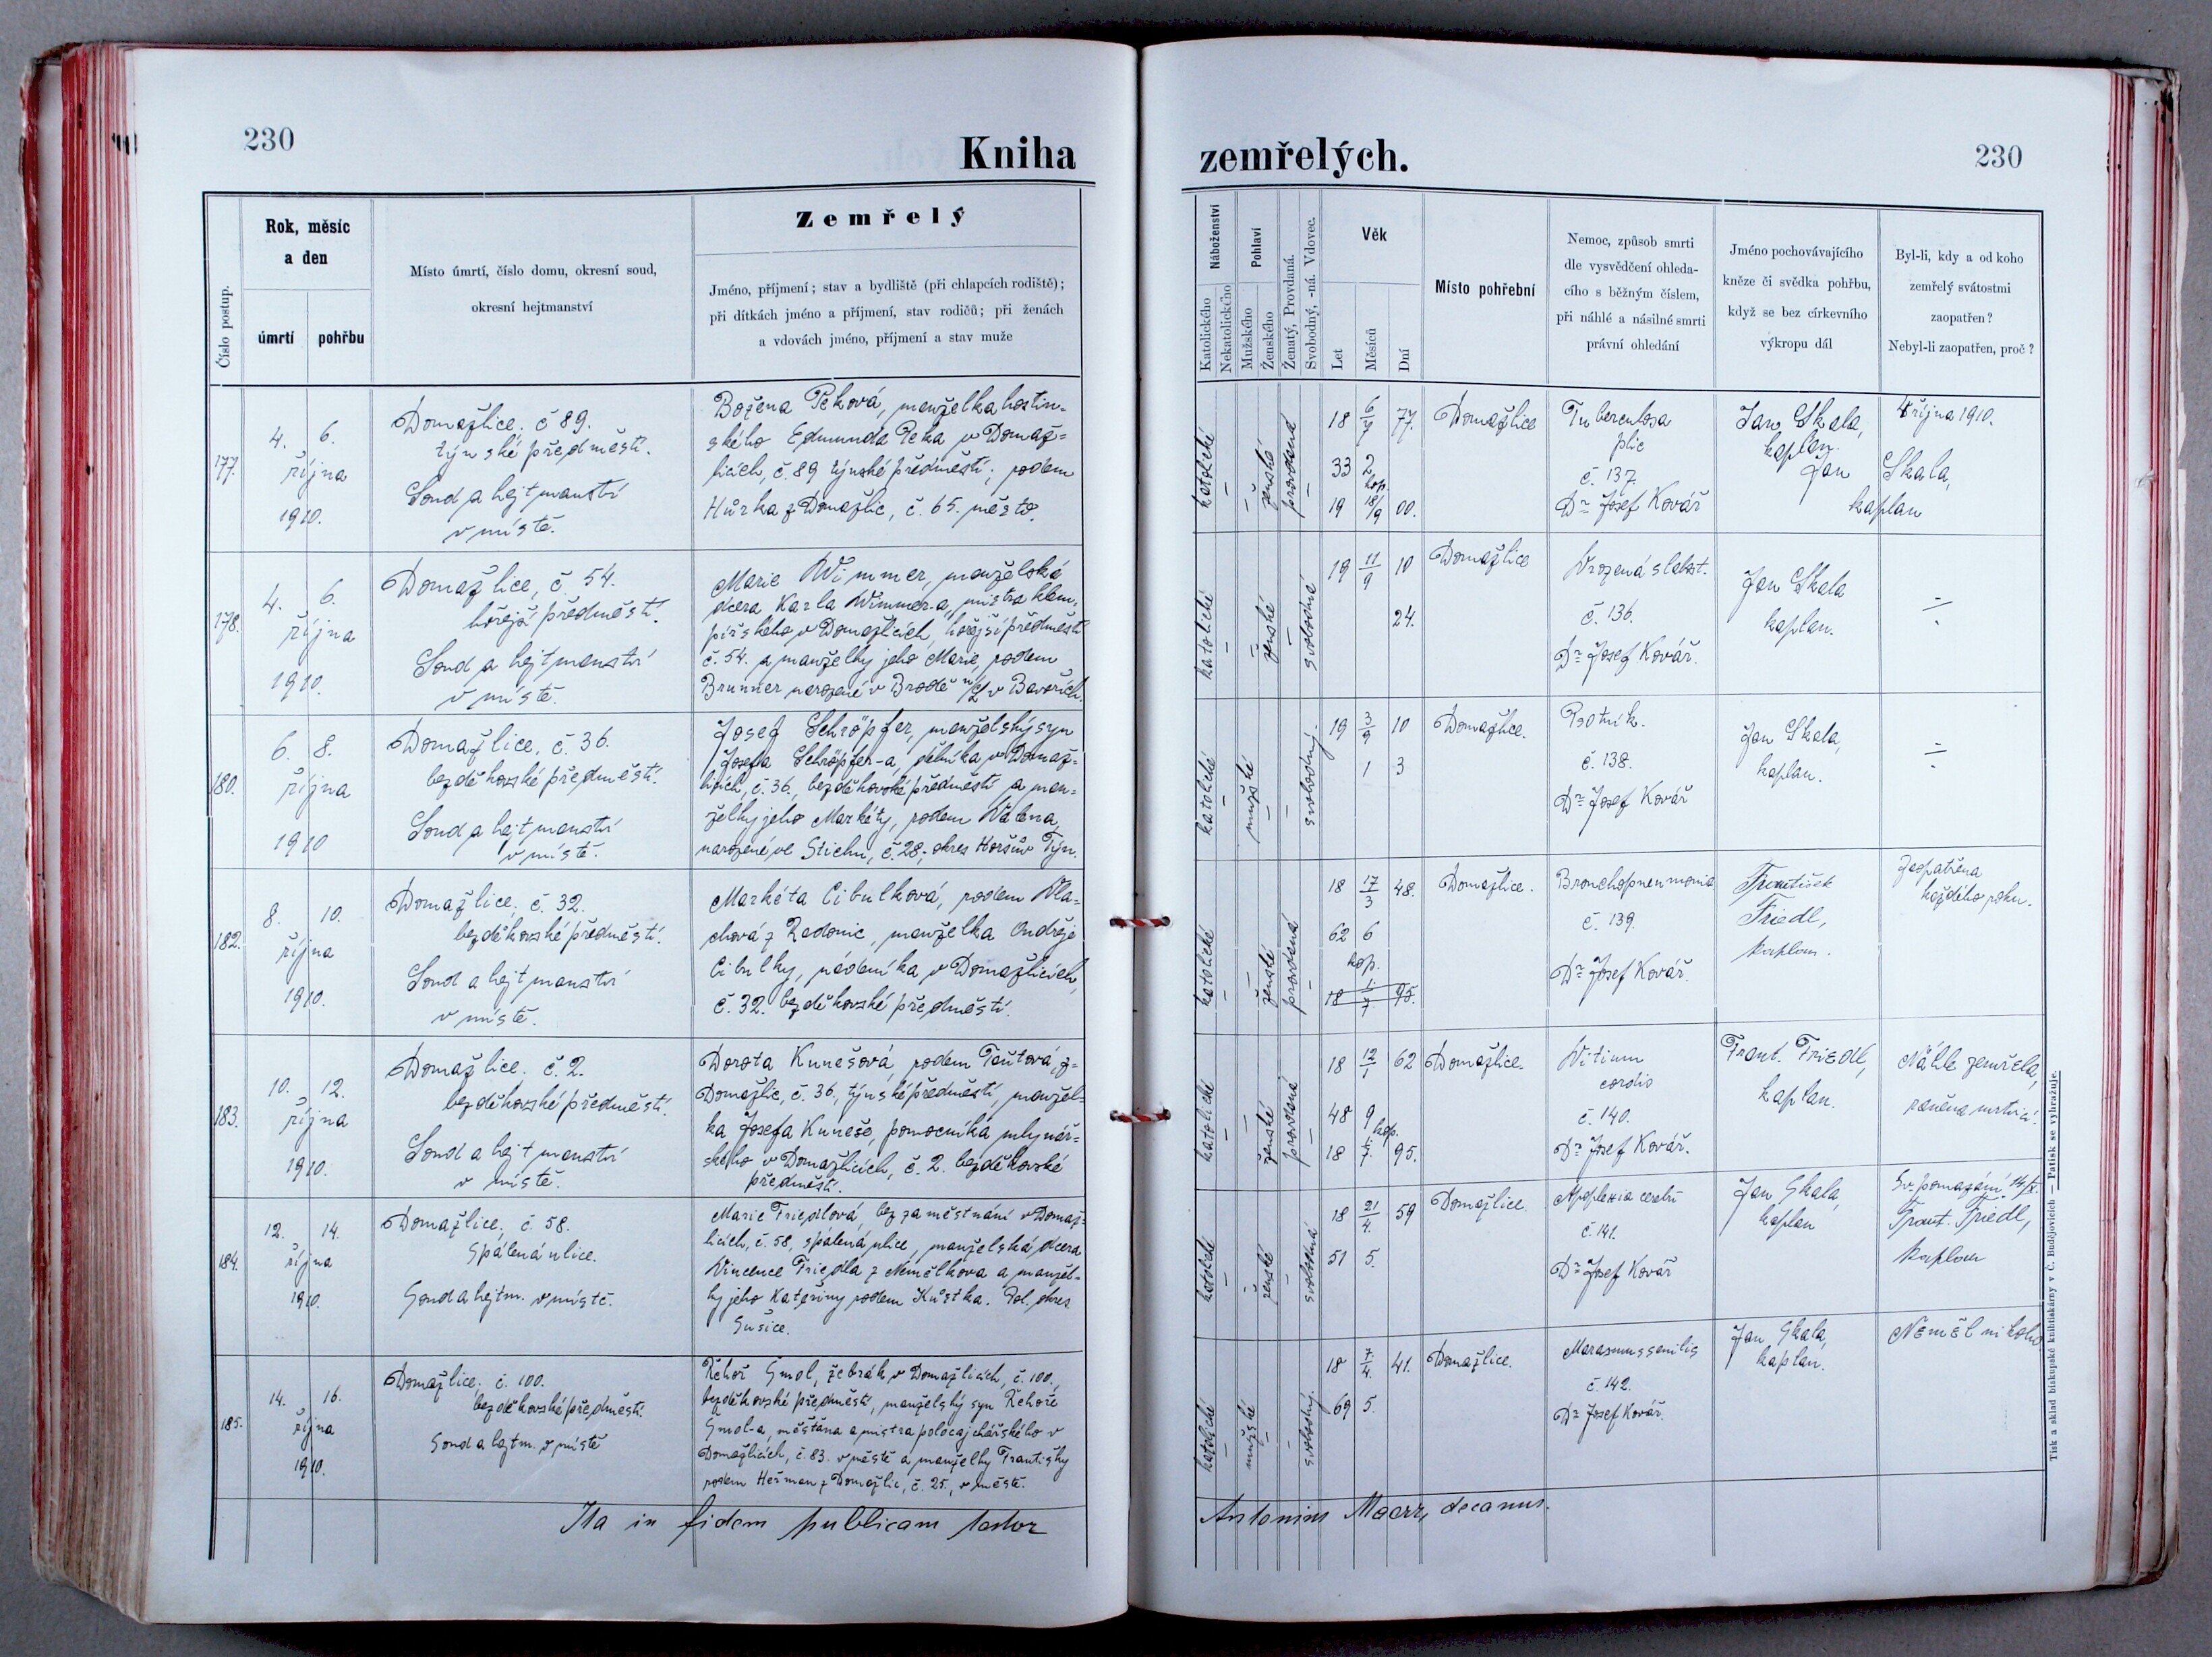 230
Kniha
Číslo postup.
Rok, měsíc
a den
úmrtí
pohřbu
Místo úmrtí, číslo domu, okresní soud,
okresní hejtmanství
Zemřelý
Jméno, příjmení; stav a bydliště (při chlapcích rodiště);
při dítkách jméno a příjmení, stav rodičů; při ženách
a vdovách jméno, příjmení a stav muže
177.
4. 6.
října
1910.
Domažlice, č 89.
týnské předměstí.
Soud a hejtmanství
v místě.
Božena Peková, manželka hostin-
ského Edmunda Peka v Domaž-
licích, č. 89 týnské předměstí; rodem
Hůrka z Domažlic, č. 65. město.
178.
4. 6.
října
1910.
Domažlice, č 54.
hořejší předměstí.
Soud a hejtmanství
v místě.
Marie Wimmer, manželská
dcera Karla Wimmer-a, mistra klem-
pířského v Domažlicích, hořejší předměstí
č. 54. a manželky jeho Marie, rodem
Brunner narozené v Brodě n/L v Bavořích.
180.
6. 8.
října
1910
Domažlice, č. 36.
bezděkovské předměstí.
Soud a hejtmanství
v místě.
Josef Schröpfer, manželský syn
Josefa Schröpfer-a, dělníka v Domaž-
licích, č. 36., bezděkovské předměstí a man-
želky jeho Markéty, rodem
narozené ve č. 28., okres Horšův Týn.
182.
8. 10.
října
1910.
Domažlice, č. 32.
bezděkovské předměstí.
Soud a hejtmanství
v místě.
Markéta Cibulková, rodem Vla-
chová z Radonic, manželka Ondřeje
Cibulky, nádeníka v Domažlicích,
č. 32. bezděkovské předměstí.
183.
10. 12.
října
1910.
Domažlice. č. 2.
bezděkovské předměstí.
Soud a hejtmanství
v místě.
Dorota Kunešová, rodem Tautová, z
Domažlic, č. 36., týnské předměstí, manžel-
ka Josefa Kuneše, pomocníka mlynář-
ského v Domažlicích, č. 2. bezděkovské
předměstí.
184.
12. 14.
října
1910.
Domažlice, č. 58.
Spálená ulice.
Soud a hejtm. v místě.
Marie Friedlová, bez zaměstnání v Domaž-
licích, č. 58, spálená ulice, manželská dcera
Vincence Friedla z Němčlkova a manžel-
ky jeho Kateřiny rodem Kůstka. Pol. okres
Sušice.
185.
14. 16.
října
1910.
Domažlice. č. 100.
bezděkovské předměstí.
Soud a hejtm. v místě
Řehoř Smol, žebrák v Domažlicích, č. 100.,
bezděkovské předměstí, manželský syn Řehoře
Smol-a, měšťana a mistra v
Domažlicích, č. 83. v městě a manželky Františky
rodem Heřman z Domažlic, č. 25., v městě.
Ita in fidem publicam testor
zemřelých.
230
Náboženství
Katolického
Nekatolického
Pohlaví
Mužského
Ženského
Ženatý, Provdaná.
Svobodný, -ná. Vdovec.
Věk
Let
Měsíců
Dní
Místo pohřební
Nemoc, způsob smrti
dle vysvědčení ohleda-
cího s běžným číslem,
při náhlé a násilné smrti
právní ohledání
Jméno pochovávajícího
kněze či svědka pohřbu,
když se bez církevního
výkropu dál
Byl-li, kdy a od koho
zemřelý svátostmi
zaopatřen?
Nebyl-li zaopatřen, proč?
katolické
ženské
provdaná
18 6/7 77.
33 2
kop.
19 18/9 00.
Domažlice
Tuberculosa
plic
č. 137.
Dr Josef Kovář
Jan Skala,
kaplan.
4 října 1910.
Jan Skala,
kaplan
katolické
ženské
svobodná
19 11/9 10
24.
Domažlice
Vrozená slabost.
č. 136.
Dr Josef Kovář.
Jan Skala
kaplan.
÷
katolické
mužské
svobodný.
19 3/9 10
1 3
Domažlice.
Psotník.
č. 138.
Dr Josef Kovář
Jan Skala,
kaplan.
÷
katolické
ženské
provdaná
18 17/3 48.
62 6
kop.
18 1/7 95.
Domažlice.
Bronchopneumonia
č. 139.
Dr Josef Kovář.
František
Friedl,
kaplan.
Zaopatřena
každého roku.
katolické
ženské
provdaná
18 12/1 62
48 9
kop.
18 1/7. 95.
Domažlice.
Vitium
cordis
č. 140.
Dr Josef Kovář.
Frant. Friedl,
kaplan.
Náhle zemřela,
raněna mrtvicí.
katolické
ženské
svobodná
18 21/4. 59
51 5.
Domažlice.
Apoplexia cerebri
č. 141.
Dr Josef Kovář
Jan Skala,
kaplan
Sv. pomazání
Frant. Friedl,
kaplan
katolické
mužské
svobodný.
18 7/4. 41.
69 5.
Domažlice.
Marasmus senilis
č. 142.
Dr Josef Kovář.
Jan Skala,
kaplan.
Neměl nikoho
Antonius decanus.
Tisk a sklad biskupské knihtiskárny v Č. Budějovicích — Patisk se vyhražuje.